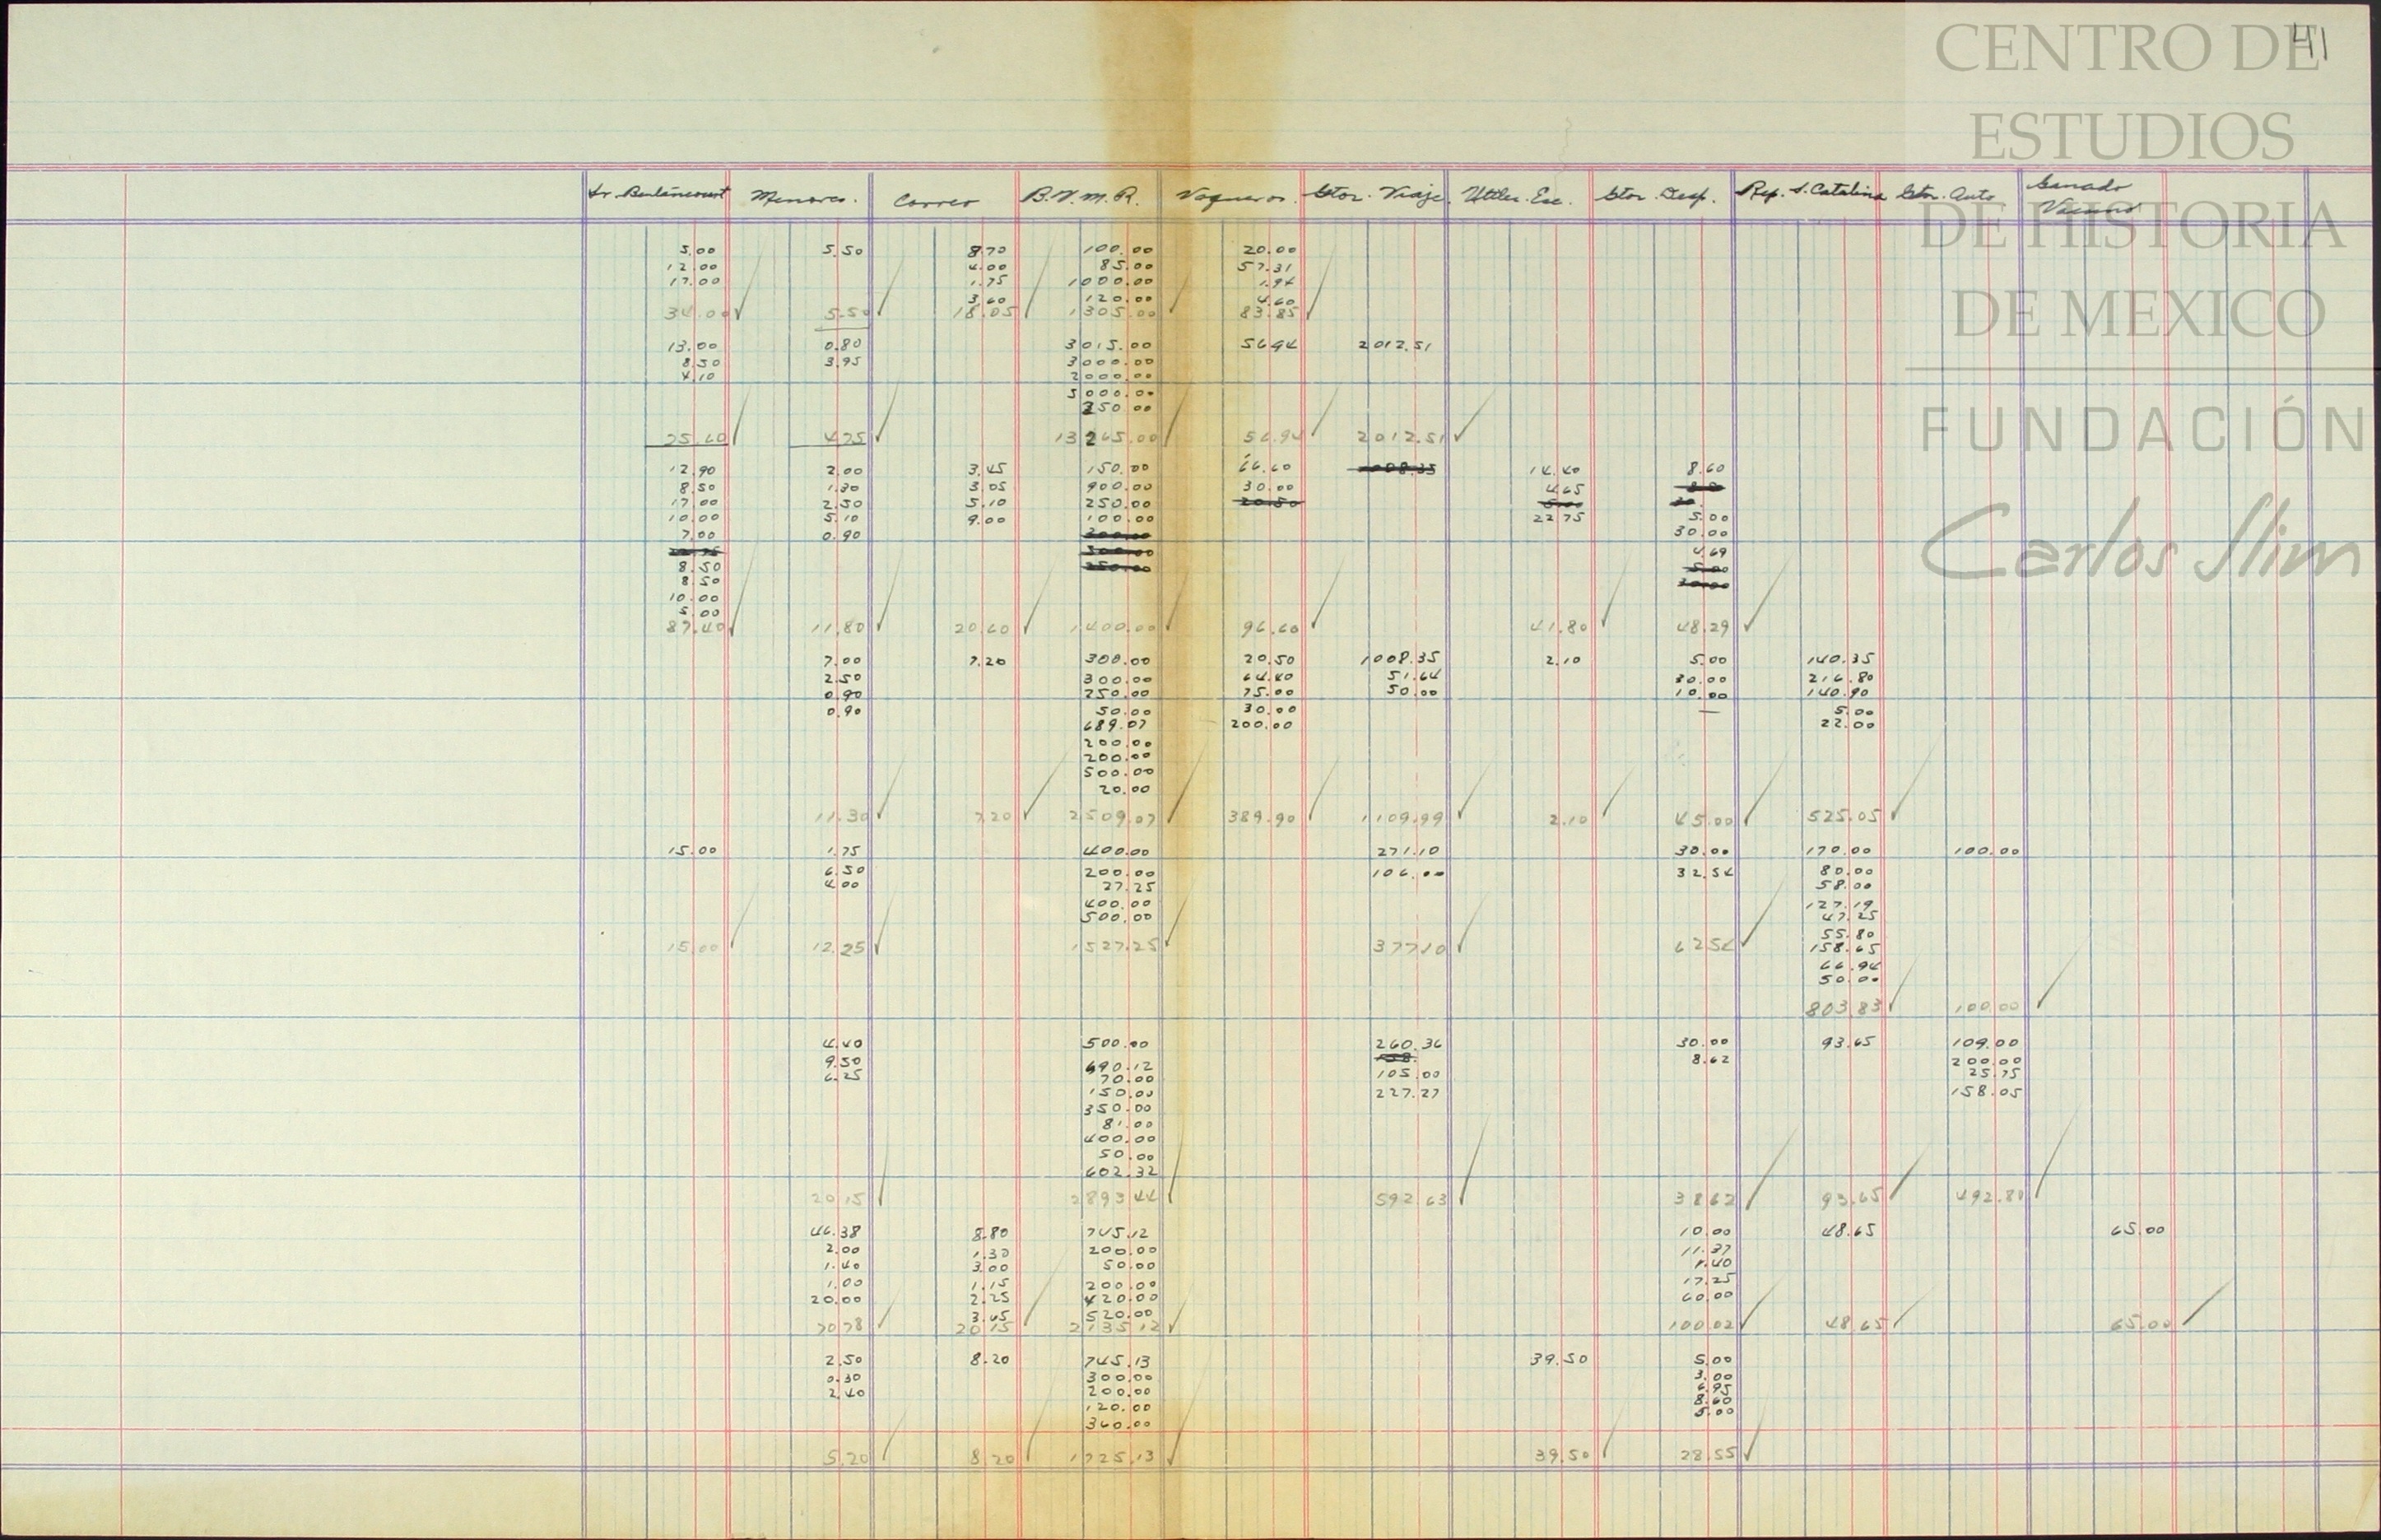 41
CENTRO DE
ESTUDIOS
DE HISTORIA
DE MEXICO
FUNDACIÓN
Carlos Slim
Menores. Correo B.V.M.R. Vaqueros. Gtos. Viaje. Utiles. Esc. Gtos. Desp. Rep. S. Catalina Gtos. Auto Ganado
Vacuno
5.00 5.50 8.70 100.00 20.00
12.00 4.00 85.00 57.31
17.00 1.75 1000.00 1.94
3.60 120.00 4.60
34.00 5.50 18.05 1305.00 83.85
13.00 0.80 3015.00 56.94 2012.51
8.50 3.95 3000.00
4.10 2000.00
5000.00
250.00
25.60 4.75 13265.00 56.94 2012.51
12.90 2.00 3.45 150.00 66.60 1008.35 14.40 8.60
8.50 1.30 3.05 900.00 30.00 4.65
17.00 2.50 5.10 250.00 20.50
10.00 5.10 9.00 100.00 22.75 5.00
7.00 0.90 300.00 30.00
300.00 4.69
8.50 250.00 5.00
8.50 30.00
10.00
5.00
87.40 11.80 20.60 1400.00 96.60 41.80 48.29
7.00 7.20 300.00 20.50 1008.35 2.10 5.00 140.35
2.50 300.00 64.40 51.64 30.00 216.80
0.90 250.00 75.00 50.00 10.00 140.90
0.90 50.00 30.00 5.00
689.07 200.00 22.00
200.00
200.00
500.00
20.00
11.30 7.20 2509.07 389.90 1109.99 2.10 45.00 525.05
15.00 1.75 400.00 271.10 30.00 170.00 100.00
6.50 200.00 106.00 32.54 80.00
4.00 27.25 58.00
400.00 127.19
500.00 47.25
55.80
15.00 12.25 1527.25 377.10 62.54 158.65
66.94
50.00
803.83 100.00
4.40 500.00 260.36 30.00 93.65 109.00
9.50 690.12 158. 8.62 200.00
6.25 70.00 105.00 25.75
150.00 227.27 158.05
350.00
81.00
400.00
50.00
602.32
20.15 2893.44 592.63 38.62 93.65 492.80
46.38 8.80 745.12 10.00 48.65 65.00
2.00 1.30 200.00 11.37
1.40 3.00 50.00 1.40
1.00 1.15 200.00 17.25
20.00 2.25 420.00 60.00
3.65 520.00
70.78 20.15 2135.12 100.02 48.65 65.00
2.50 8.20 745.13 39.50 5.00
0.30 300.00 3.00
2.40 200.00 6.95
120.00 8.60
360.00 5.00
5.20 8.20 1725.13 39.50 28.55